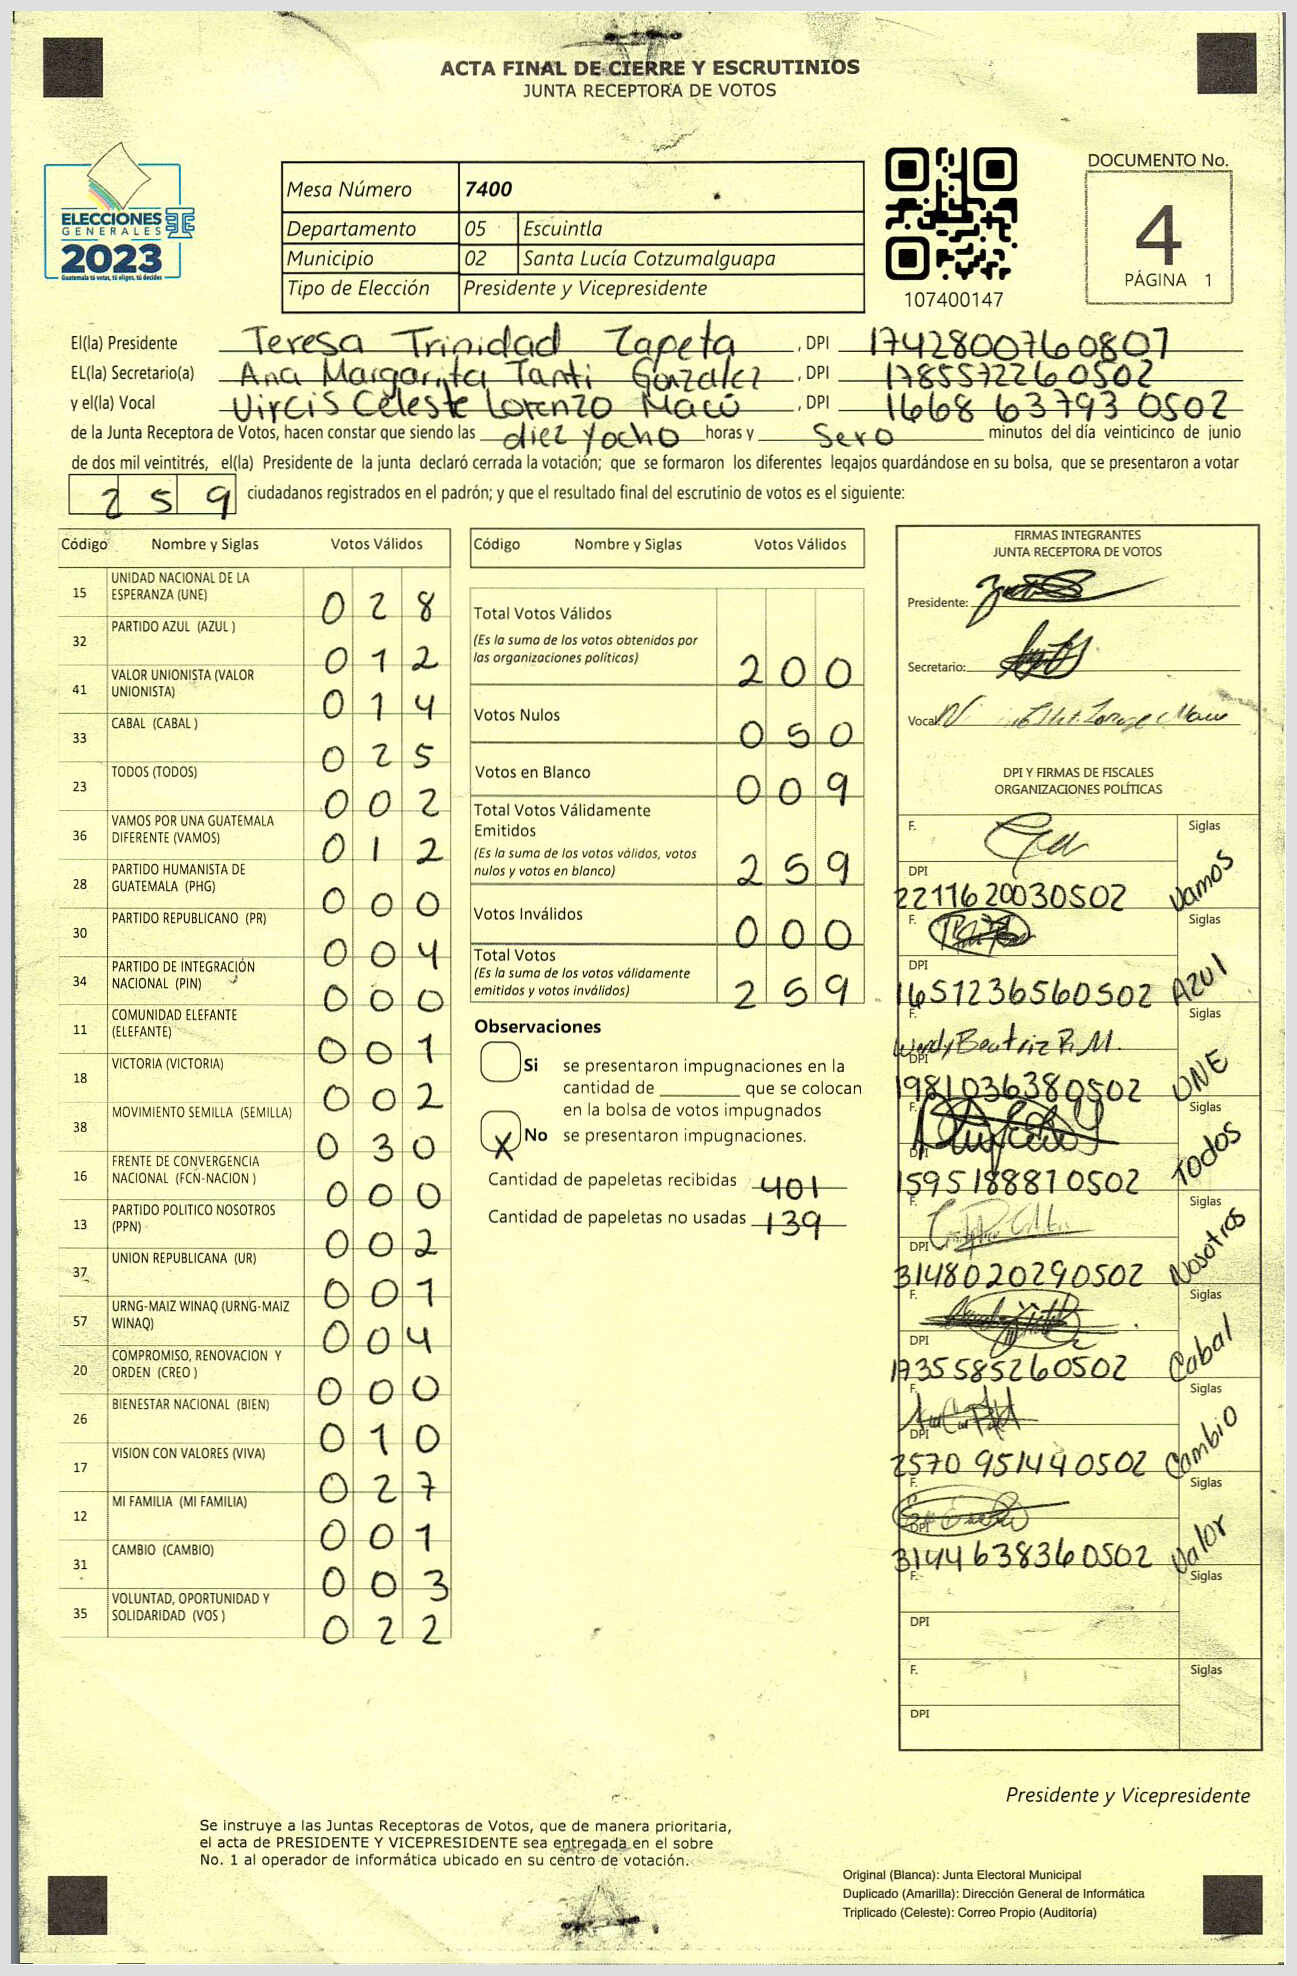 ACTA FINAL DE CIERRE Y ESCRUTINIOS
JUNTA RECEPTORA DE VOTOS
ELECCIONES
GENERALES
2023
Guatemala tú votas, tú eliges, tú decides
Mesa Número 7400
Departamento 05 Escuintla
Municipio 02 Santa Lucía Cotzumalguapa
Tipo de Elección Presidente y Vicepresidente
107400147
DOCUMENTO No.
4
PÁGINA 1
El(la) Presidente Teresa Trinidad Zapeta , DPI 1742800760807
EL(la) Secretario(a) Ana Margarita Tanti Gonzalez , DPI 1785572260502
y el(la) Vocal Vircis Celeste Lorenzo Macú , DPI 1668 63793 0502
de la Junta Receptora de Votos, hacen constar que siendo las diez yocho horas y Sero minutos del día veinticinco de junio
de dos mil veintitrés, el(la) Presidente de la junta declaró cerrada la votación; que se formaron los diferentes legajos guardándose en su bolsa, que se presentaron a votar
259 ciudadanos registrados en el padrón; y que el resultado final del escrutinio de votos es el siguiente:
Código Nombre y Siglas Votos Válidos
15 UNIDAD NACIONAL DE LA ESPERANZA (UNE) 028
32 PARTIDO AZUL (AZUL ) 012
41 VALOR UNIONISTA (VALOR UNIONISTA) 014
33 CABAL (CABAL ) 025
23 TODOS (TODOS) 002
36 VAMOS POR UNA GUATEMALA DIFERENTE (VAMOS) 012
28 PARTIDO HUMANISTA DE GUATEMALA (PHG) 000
30 PARTIDO REPUBLICANO (PR) 004
34 PARTIDO DE INTEGRACIÓN NACIONAL (PIN) 000
11 COMUNIDAD ELEFANTE (ELEFANTE) 001
18 VICTORIA (VICTORIA) 002
38 MOVIMIENTO SEMILLA (SEMILLA) 030
16 FRENTE DE CONVERGENCIA NACIONAL (FCN-NACION ) 000
13 PARTIDO POLITICO NOSOTROS (PPN) 002
37 UNION REPUBLICANA (UR) 001
57 URNG-MAIZ WINAQ (URNG-MAIZ WINAQ) 004
20 COMPROMISO, RENOVACION Y ORDEN (CREO ) 000
26 BIENESTAR NACIONAL (BIEN) 010
17 VISION CON VALORES (VIVA) 027
12 MI FAMILIA (MI FAMILIA) 001
31 CAMBIO (CAMBIO) 003
35 VOLUNTAD, OPORTUNIDAD Y SOLIDARIDAD (VOS ) 022
Código Nombre y Siglas Votos Válidos
Total Votos Válidos
(Es la suma de los votos obtenidos por
las organizaciones políticas) 200
Votos Nulos 050
Votos en Blanco 009
Total Votos Válidamente
Emitidos
(Es la suma de los votos válidos, votos
nulos y votos en blanco) 259
Votos Inválidos 000
Total Votos
(Es la suma de los votos válidamente
emitidos y votos inválidos) 259
Observaciones
Si se presentaron impugnaciones en la
cantidad de ________ que se colocan
en la bolsa de votos impugnados
X No se presentaron impugnaciones.
Cantidad de papeletas recibidas 401
Cantidad de papeletas no usadas 139
FIRMAS INTEGRANTES
JUNTA RECEPTORA DE VOTOS
Presidente:
Secretario:
Vocal:
DPI Y FIRMAS DE FISCALES
ORGANIZACIONES POLÍTICAS
F. Siglas
DPI
2211620030502 Vamos
F. Siglas
DPI
1651236560502 Azul
F. Siglas
Wendy Beatriz R. M.
DPI
1981036380502 UNE
F. Siglas
DPI
1595188810502 Todos
F. Siglas
DPI
3148020290502 Nosotros
F. Siglas
DPI
1735585260502 Cabal
F. Siglas
DPI
2570 951440502 Cambio
F. Siglas
DPI
3144638360502 Valor
F. Siglas
DPI
F. Siglas
DPI
Presidente y Vicepresidente
Se instruye a las Juntas Receptoras de Votos, que de manera prioritaria,
el acta de PRESIDENTE Y VICEPRESIDENTE sea entregada en el sobre
No. 1 al operador de informática ubicado en su centro de votación.
Original (Blanca): Junta Electoral Municipal
Duplicado (Amarilla): Dirección General de Informática
Triplicado (Celeste): Correo Propio (Auditoría)